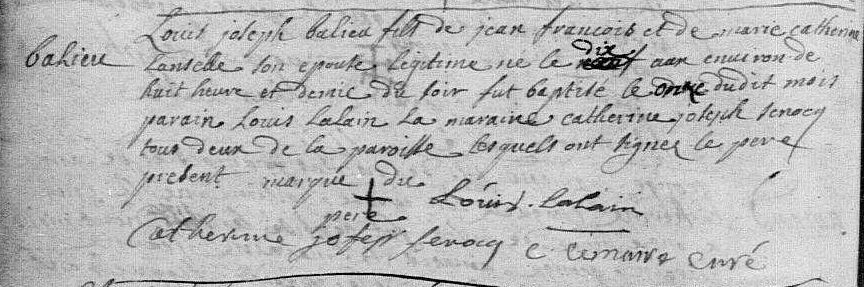 Louis joseph balieu fils de jean francois et de marie catherine
balieu
Lanselle son epouse legitime ne le dix aux environ de
huit heure et demie du soir fut baptise le onze dudit mois
parain Louis Lalain La maraine catherine joseph Senocq
tous deux de la paroisse lesquels ont signez le pere
present marque du
pere
Louis Lalain
Catherinne josepf senocq C Lemaire curé